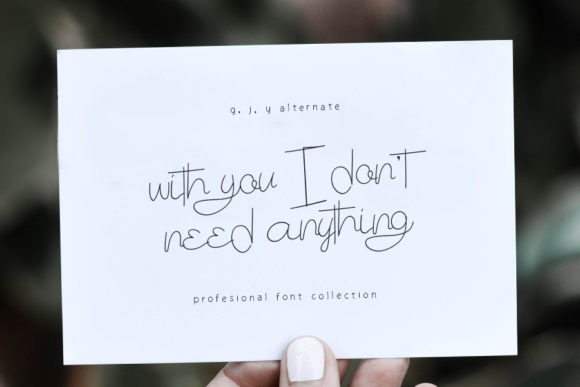 g, j, y alternate
with you I don't
need anything
profesional font collection